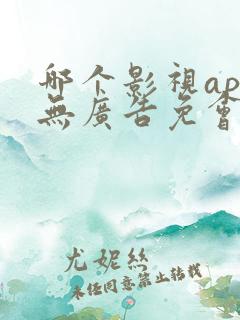 哪个影視ap
無廣告免會
尤妮絲
未经同意禁止转载